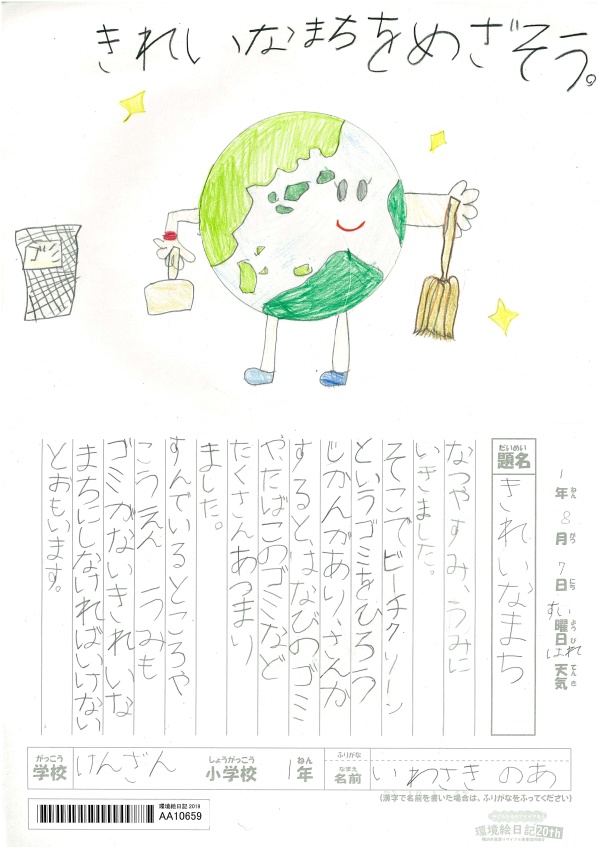 きれいなまちをめざそう。
ゴミ
1年8月7日すい曜日はれ天気
ねん がつ にち ようび てんき
だいめい
題名 きれいなまち
なつやすみ、うみに
いきました。
そこでビーチクリーン
というゴミをひろう
じかんがあり、さんか
すると、はなびのゴミ
や、たばこのゴミなど
たくさんあつまり
ました。
すんでいるところや
こうえん うみも
ゴミがないきれいな
まちにしなければいけない
とおもいます。
がっこう しょうがっこう ねん ふりがな
学校 けんざん 小学校 1年
なまえ
名前 いわさき のあ
(漢字で名前を書いた場合は、ふりがなをふってください)
環境絵日記 2019
AA10659
環境絵日記20th